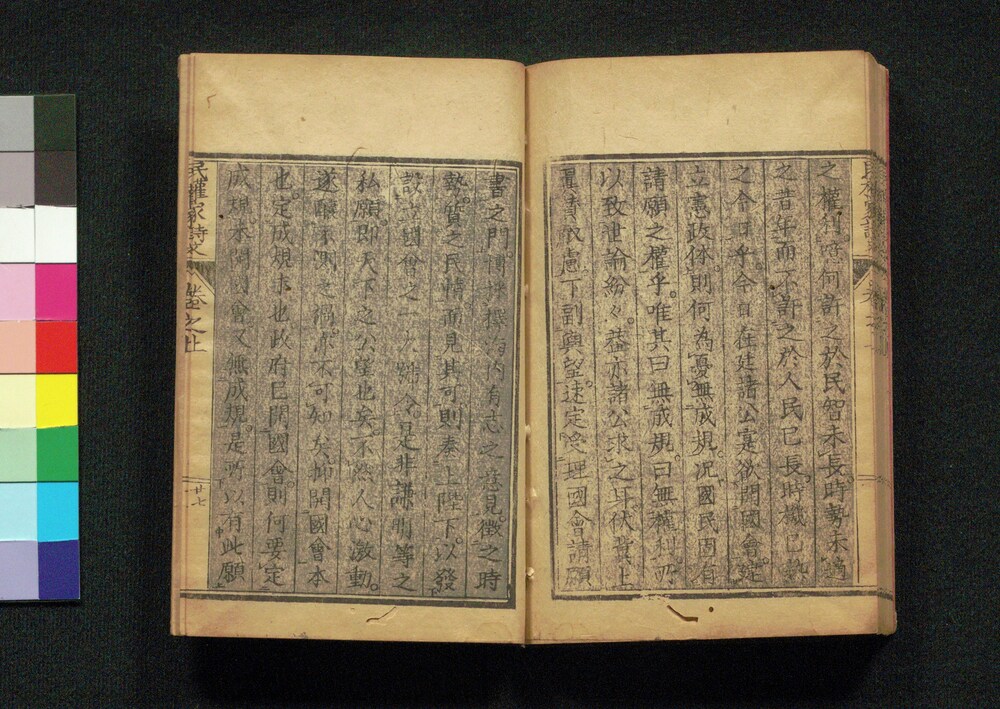 之權利吝何許之於民智未長時勢未適
之昔年而不許之於人民已長時機已熟
之今日乎今日在廷諸公宴欲開國會定
立憲政体則何為憂無成規况國民固有
請願之權乎唯其曰無成規曰無權利
以致世論紛々蓋亦諸公求之耳伏冀上
慮下副與望速定受理國會請願
書之門博採海內有志之意見徵之時
勢質之民情而見其可則奏上陛下以發
設立國會之一大詔令是非謙明等之
私願即天下之公望也矣不然人心激動
遂釀不測之禍亦不可知矣抑開國會本
也定成規末也政府已開國會則何要定
成規未開國會又無成規是所以有此願
民權家詩文 卷之上
廿七